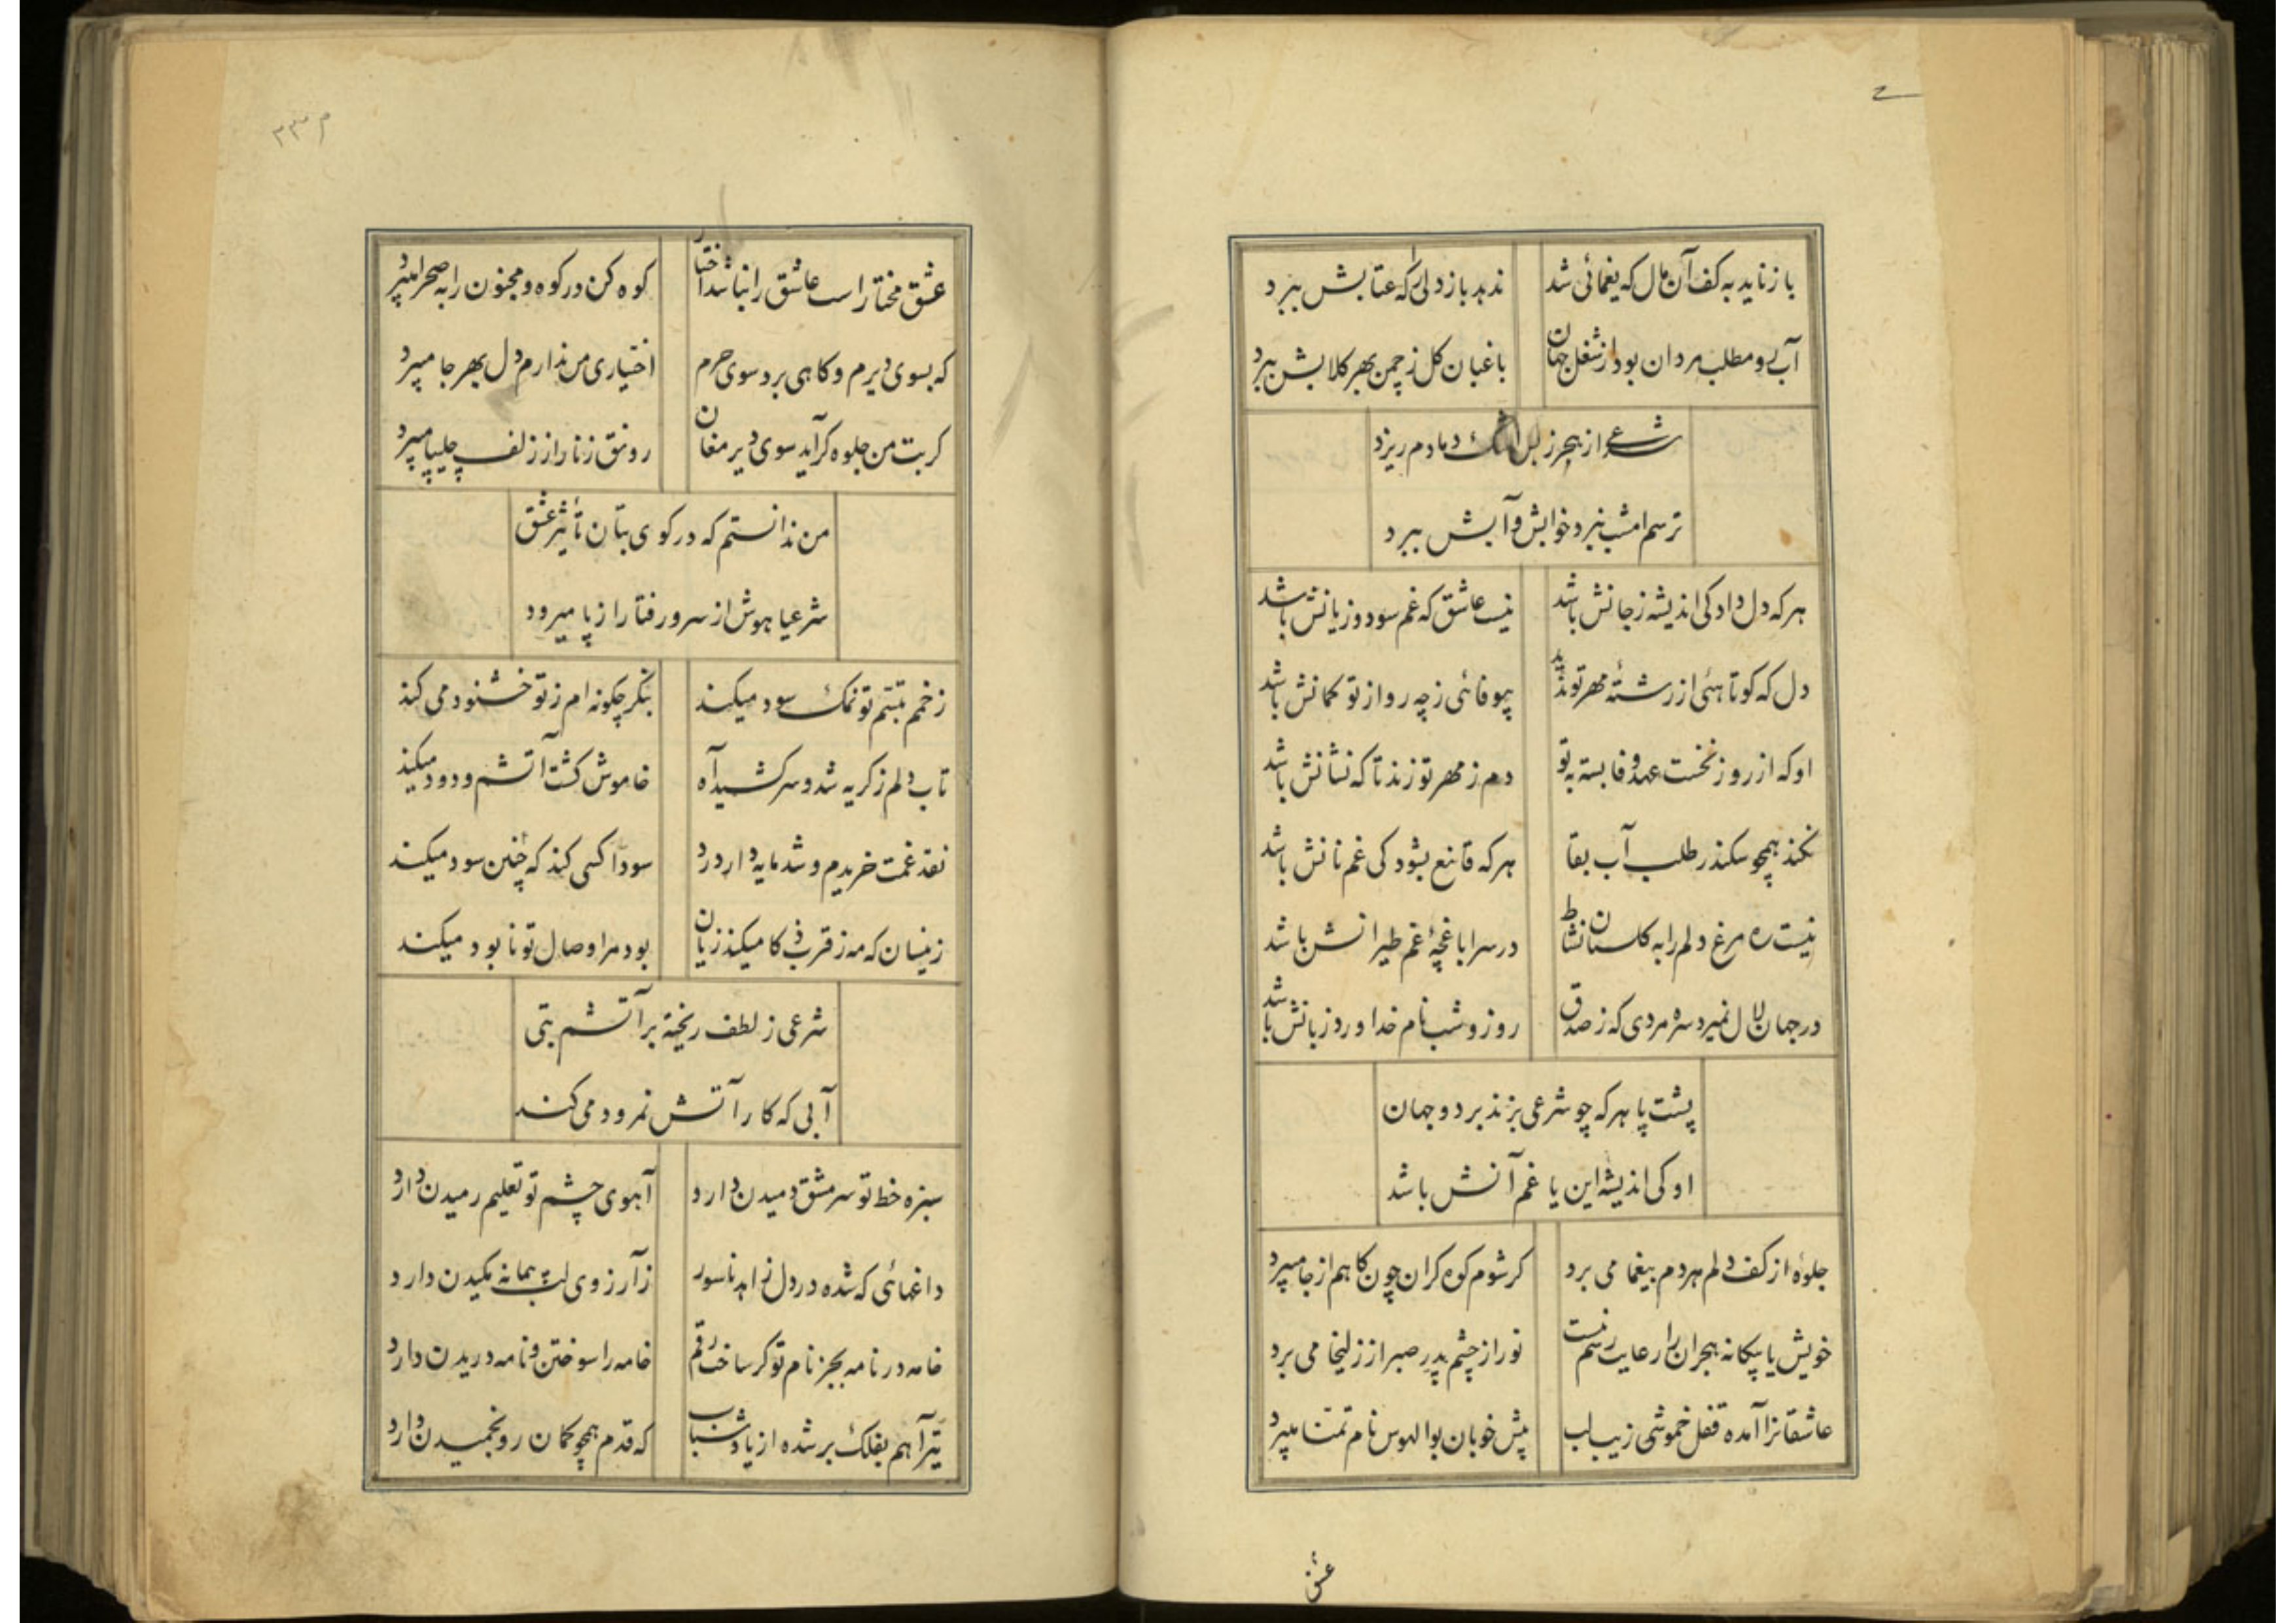 باز ناید به کف آن مال که یغمائی شد
ندهد باز دلی را که عتابش ببرد
آب رو مطلب مردان بود از شغل جهان
باغبان کل ز چمن بهر کلابش ببرد
شرعی از هجر ز بس اشک دمادم ریزد
ترسم امشب نبرد خوابش و آبش ببرد
هر که دل داد کی اندیشه ز جانش باشد
نیست عاشق که غم سود و زیانش باشد
دل که کوتاهئی از رشتهٔ مهر تو ندید
بیوفائی ز چه رو از تو کمانش باشد
او که از روز نخست عهد وفا بسته به تو
دم ز مهر تو زند تا که نشانش باشد
نکند همچو سکندر طلب آب بقا
هر که قانع بشود کی غم نانش باشد
نیست ره مرغ دلم را به کلستان نشاط
در سرا باغچهٔ غم طیرانش باشد
در جهان لال نمیرد سره مردی که ز صدق
روز و شب نام خدا ورد زبانش باشد
پشت پا هر که چو شرعی بزند بر دو جهان
او کی اندیشه این یا غم آنش باشد
جلوهٔ از کف دلم هردم بیغما می برد
کر شوم کوه کران چون کاهم از جا میبرد
خویش یا بیکانه هجران را رعایت رسم نیست
نور از چشم پدر صبر از زلیخا می برد
عاشقانرا آمده قفل خموشی زیب لب
پیش خوبان بوالهوس نام تمنّا میبرد
عشق
م ۲۳۳
عشق مختار است عاشق را نباشد اختیار
کوه کن در کوه و مجنون را به صحرا میبرد
که بسوی دیرم و کاهی برد سوی حرم
اختیاری من ندارم دل بهر جا میبرد
کر بت من جلوه کر آید سوی دیر مغان
رونق زنار از زلف چلیپا میبرد
من ندانستم که در کوی بتان تأثیر عشق
شرعیا هوش از سر و رفتار از پا میبرد
زخمم تبسّم تو نمک سود میکند
بنکر چکونه ام ز تو خشنود می کند
تاب دلم ز کریه شد و سر کشید آه
خاموش کشت آتشم و دود میکند
نقد غمت خریدم و شد مایه دار درد
سودا کسی کند که چنین سود میکند
زینسان که مه ز قرب ذکا میکند زیان
بود مرا وصال تو نابود میکند
شرعی ز لطف ریخته بر آتشم بتی
آبی که کار آتش نمرود می کند
سبزه خط تو سر مشق دمیدن دارد
آهوی چشم تو تعلیم رمیدن دارد
داغهائی که شده در دل زاهد ناسور
ز آرزوی لب پیمانه مکیدن دارد
خامه در نامه بجز نام تو کر ساخت رقم
خامه را سوختن و نامه دریدن دارد
تیر آهم بفلک بر شده از یاد شباب
که قدم همچو کمان رو بخمیدن دارد